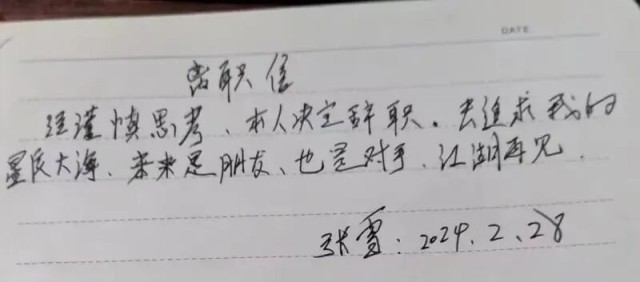 DATE
离职信
经谨慎思考、本人决定辞职。去追求我的
星辰大海、未来是朋友、也是对手、江湖再见.
张雪: 2024.2.28